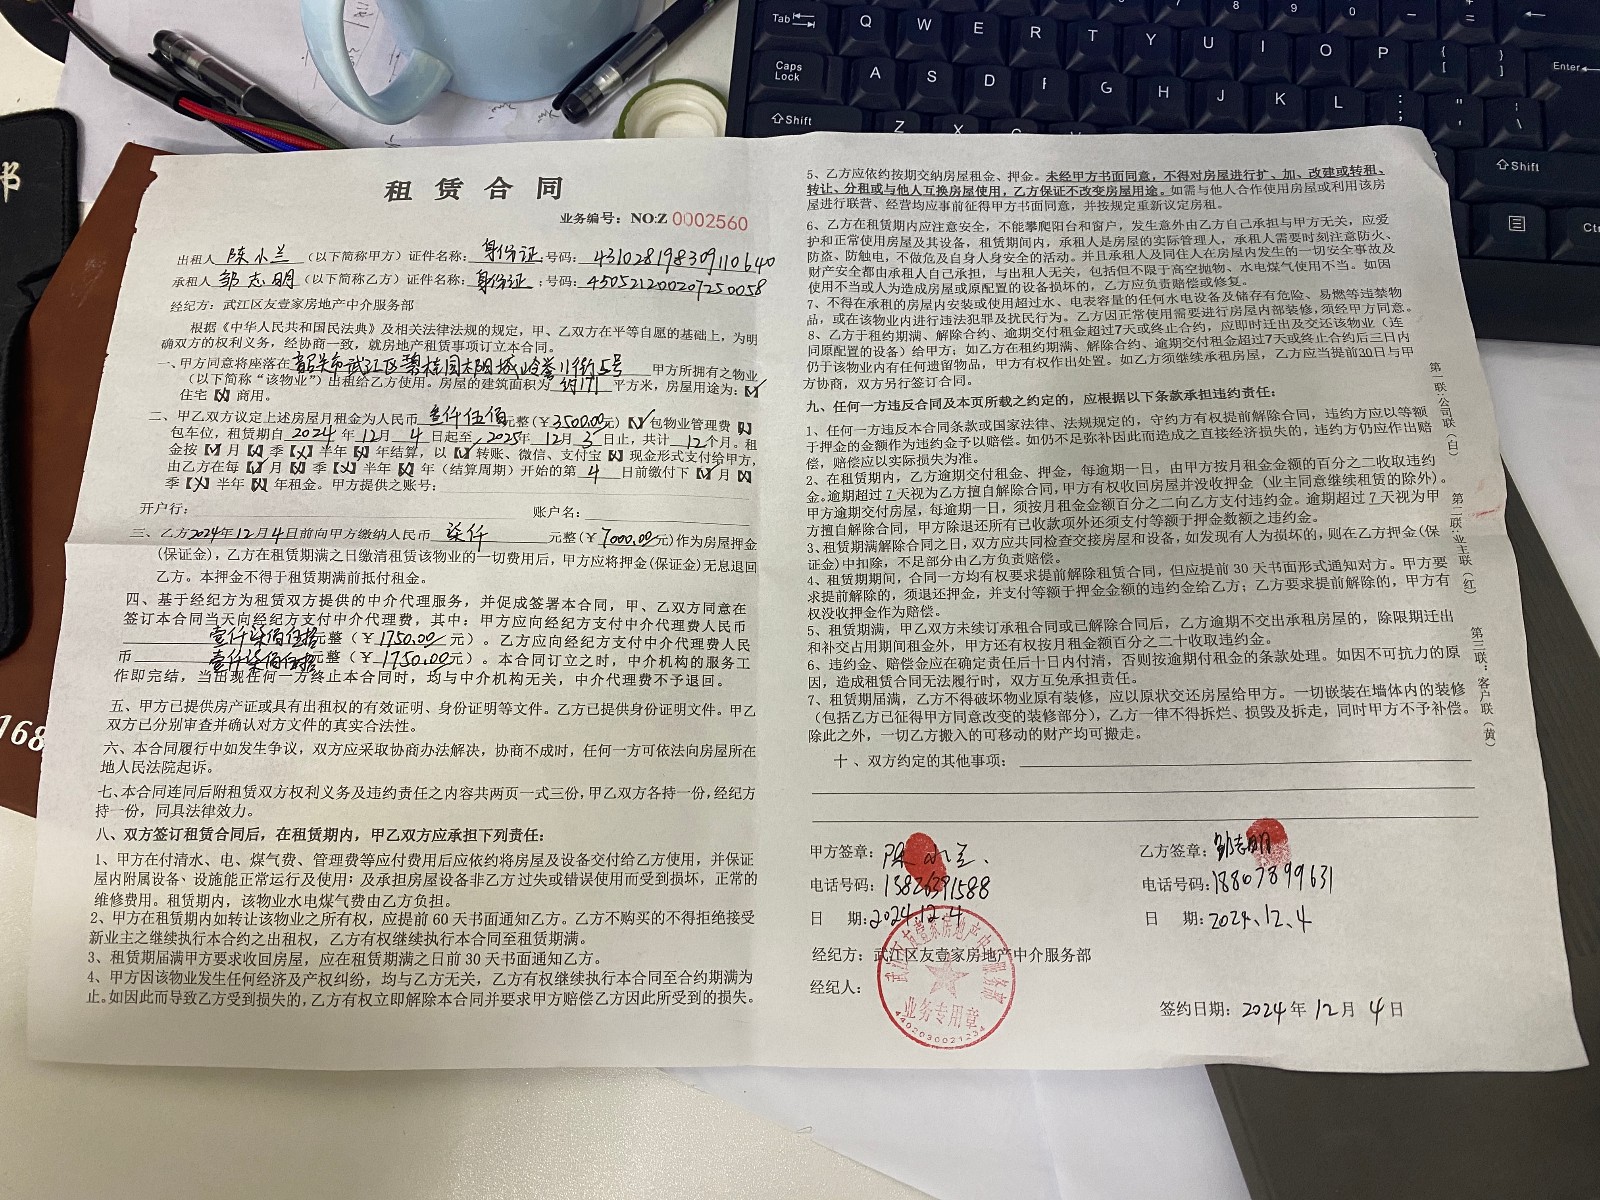 租 赁 合 同
业务编号：NO:Z 0002560
出租人 陈小兰 （以下简称甲方）证件名称：身份证 号码：431028198309110640
承租人 邹志明 （以下简称乙方）证件名称：身份证 ；号码：450521200207250058
经纪方：武江区友壹家房地产中介服务部
根据《中华人民共和国民法典》及相关法律法规的规定，甲、乙双方在平等自愿的基础上，为明
确双方的权利义务，经协商一致，就房地产租赁事项订立本合同。
一、甲方同意将座落在韶关市武江区碧桂园太阳城岭誉11街5号 甲方所拥有之物业
（以下简称“该物业”）出租给乙方使用。房屋的建筑面积为 约171 平方米，房屋用途为：【✓】
住宅【×】商用。
二、甲乙双方议定上述房屋月租金为人民币 叁仟伍佰元整（￥3500.00元）【✓】包物业管理费【】
包车位，租赁期自 2024 年 12月 4 日起至 2025年 12月 3 日止，共计 12个月。租
金按【】月【】季【×】半年【】年结算，以【】转账、微信、支付宝【】现金形式支付给甲方，
由乙方在每【】月【】季【×】半年【】年（结算周期）开始的第 4 日前缴付下【】月【】
季【×】半年【×】年租金。甲方提供之账号：
开户行： 账户名：
三、乙方2024年12月4日前向甲方缴纳人民币 柒仟 元整（￥7000.00元）作为房屋押金
(保证金)，乙方在租赁期满之日缴清租赁该物业的一切费用后，甲方应将押金(保证金)无息退回
乙方。本押金不得于租赁期满前抵付租金。
四、基于经纪方为租赁双方提供的中介代理服务，并促成签署本合同，甲、乙双方同意在
签订本合同当天向经纪方支付中介代理费，其中：甲方应向经纪方支付中介代理费人民币
壹仟柒佰伍拾元整（￥1750.00/元）。乙方应向经纪方支付中介代理费人民
币 壹仟柒佰伍拾元整（￥1750.00元）。本合同订立之时，中介机构的服务工
作即完结，当出现任何一方终止本合同时，均与中介机构无关，中介代理费不予退回。
五、甲方已提供房产证或具有出租权的有效证明、身份证明等文件。乙方已提供身份证明文件。甲乙
双方已分别审查并确认对方文件的真实合法性。
六、本合同履行中如发生争议，双方应采取协商办法解决，协商不成时，任何一方可依法向房屋所在
地人民法院起诉。
七、本合同连同后附租赁双方权利义务及违约责任之内容共两页一式三份，甲乙双方各持一份，经纪方
持一份，同具法律效力。
八、双方签订租赁合同后，在租赁期内，甲乙双方应承担下列责任：
1、甲方在付清水、电、煤气费、管理费等应付费用后应依约将房屋及设备交付给乙方使用，并保证
屋内附属设备、设施能正常运行及使用；及承担房屋设备非乙方过失或错误使用而受到损坏，正常的
维修费用。租赁期内，该物业水电煤气费由乙方负担。
2、甲方在租赁期内如转让该物业之所有权，应提前60天书面通知乙方。乙方不购买的不得拒绝接受
新业主之继续执行本合约之出租权，乙方有权继续执行本合同至租赁期满。
3、租赁期届满甲方要求收回房屋，应在租赁期满之日前30天书面通知乙方。
4、甲方因该物业发生任何经济及产权纠纷，均与乙方无关，乙方有权继续执行本合同至合约期满为
止。如因此而导致乙方受到损失的，乙方有权立即解除本合同并要求甲方赔偿乙方因此所受到的损失。
5、乙方应依约按期交纳房屋租金、押金。未经甲方书面同意，不得对房屋进行扩、加、改建或转租、
转让、分租或与他人互换房屋使用，乙方保证不改变房屋用途。如需与他人合作使用房屋或利用该房
屋进行联营、经营均应事前征得甲方书面同意，并按规定重新议定房租。
6、乙方在租赁期内应注意安全，不能攀爬阳台和窗户，发生意外由乙方自己承担与甲方无关，应爱
护和正常使用房屋及其设备，租赁期间内，承租人是房屋的实际管理人，承租人需要时刻注意防火、
防盗、防触电，不做危及自身人身安全的活动。并且承租人及同住人在房屋内发生的一切安全事故及
财产安全都由承租人自己承担，与出租人无关，包括但不限于高空抛物、水电煤气使用不当。如因
使用不当或人为造成房屋或原配置的设备损坏的，乙方应负责赔偿或修复。
7、不得在承租的房屋内安装或使用超过水、电表容量的任何水电设备及储存有危险、易燃等违禁物
品，或在该物业内进行违法犯罪及扰民行为。乙方因正常使用需要进行房屋内部装修，须经甲方同意。
8、乙方于租约期满、解除合约、逾期交付租金超过7天或终止合约，应即时迁出及交还该物业（连
同原配置的设备）给甲方；如乙方在租约期满、解除合约、逾期交付租金超过7天或终止合约后三日内
仍于该物业内有任何遗留物品，甲方有权作出处置。如乙方须继续承租房屋，乙方应当提前30日与甲
方协商，双方另行签订合同。
九、任何一方违反合同及本页所载之约定的，应根据以下条款承担违约责任：
1、任何一方违反本合同条款或国家法律、法规规定的，守约方有权提前解除合同，违约方应以等额
于押金的金额作为违约金予以赔偿。如仍不足弥补因此而造成之直接经济损失的，违约方仍应作出赔
偿，赔偿应以实际损失为准。
2、在租赁期内，乙方逾期交付租金、押金，每逾期一日，由甲方按月租金金额的百分之二收取违约
金。逾期超过 7 天视为乙方擅自解除合同，甲方有权收回房屋并没收押金（业主同意继续租赁的除外）。
甲方逾期交付房屋，每逾期一日，须按月租金金额百分之二向乙方支付违约金。逾期超过 7 天视为甲
方擅自解除合同，甲方除退还所有已收款项外还须支付等额于押金数额之违约金。
3、租赁期满解除合同之日，双方应共同检查交接房屋和设备，如发现有人为损坏的，则在乙方押金(保
证金)中扣除，不足部分由乙方负责赔偿。
4、租赁期期间，合同一方均有权要求提前解除租赁合同，但应提前 30 天书面形式通知对方。甲方要
求提前解除的，须退还押金，并支付等额于押金金额的违约金给乙方；乙方要求提前解除的，甲方有
权没收押金作为赔偿。
5、租赁期满，甲乙双方未续订承租合同或已解除合同后，乙方逾期不交出承租房屋的，除限期迁出
和补交占用期间租金外，甲方还有权按月租金额百分之二十收取违约金。
6、违约金、赔偿金应在确定责任后十日内付清，否则按逾期付租金的条款处理。如因不可抗力的原
因，造成租赁合同无法履行时，双方互免承担责任。
7、租赁期届满，乙方不得破坏物业原有装修，应以原状交还房屋给甲方。一切嵌装在墙体内的装修
（包括乙方已征得甲方同意改变的装修部分），乙方一律不得拆烂、损毁及拆走，同时甲方不予补偿。
除此之外，一切乙方搬入的可移动的财产均可搬走。
十、双方约定的其他事项：
甲方签章：陈小兰 乙方签章：邹志明
电话号码：13826291588 电话号码：18807899631
日 期：2024.12.4 日 期：2024.12.4
经纪方：武江区友壹家房地产中介服务部
经纪人：
签约日期：2024年 12月 4日
武江区友壹家房地产中介服务部
业务专用章
4402030021234
第一联：公司联（白）
第二联：业主联（红）
第三联：客户联（黄）
168
Tab Q W E R T Y U I O P { [ } ] Enter
Caps Lock A S D F G H J K L : ; " '
Shift Z X Shift
Ctrl